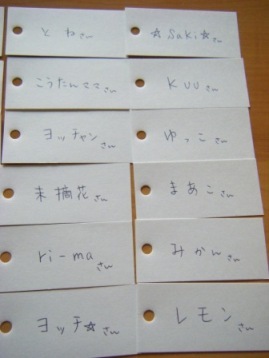 とねさん
☆Saki☆さん
こうたんママさん
Kuuさん
ヨッチャンさん
ゆっこさん
末摘花さん
まあこさん
ri-maさん
みかんさん
ヨッチ☆さん
レモンさん